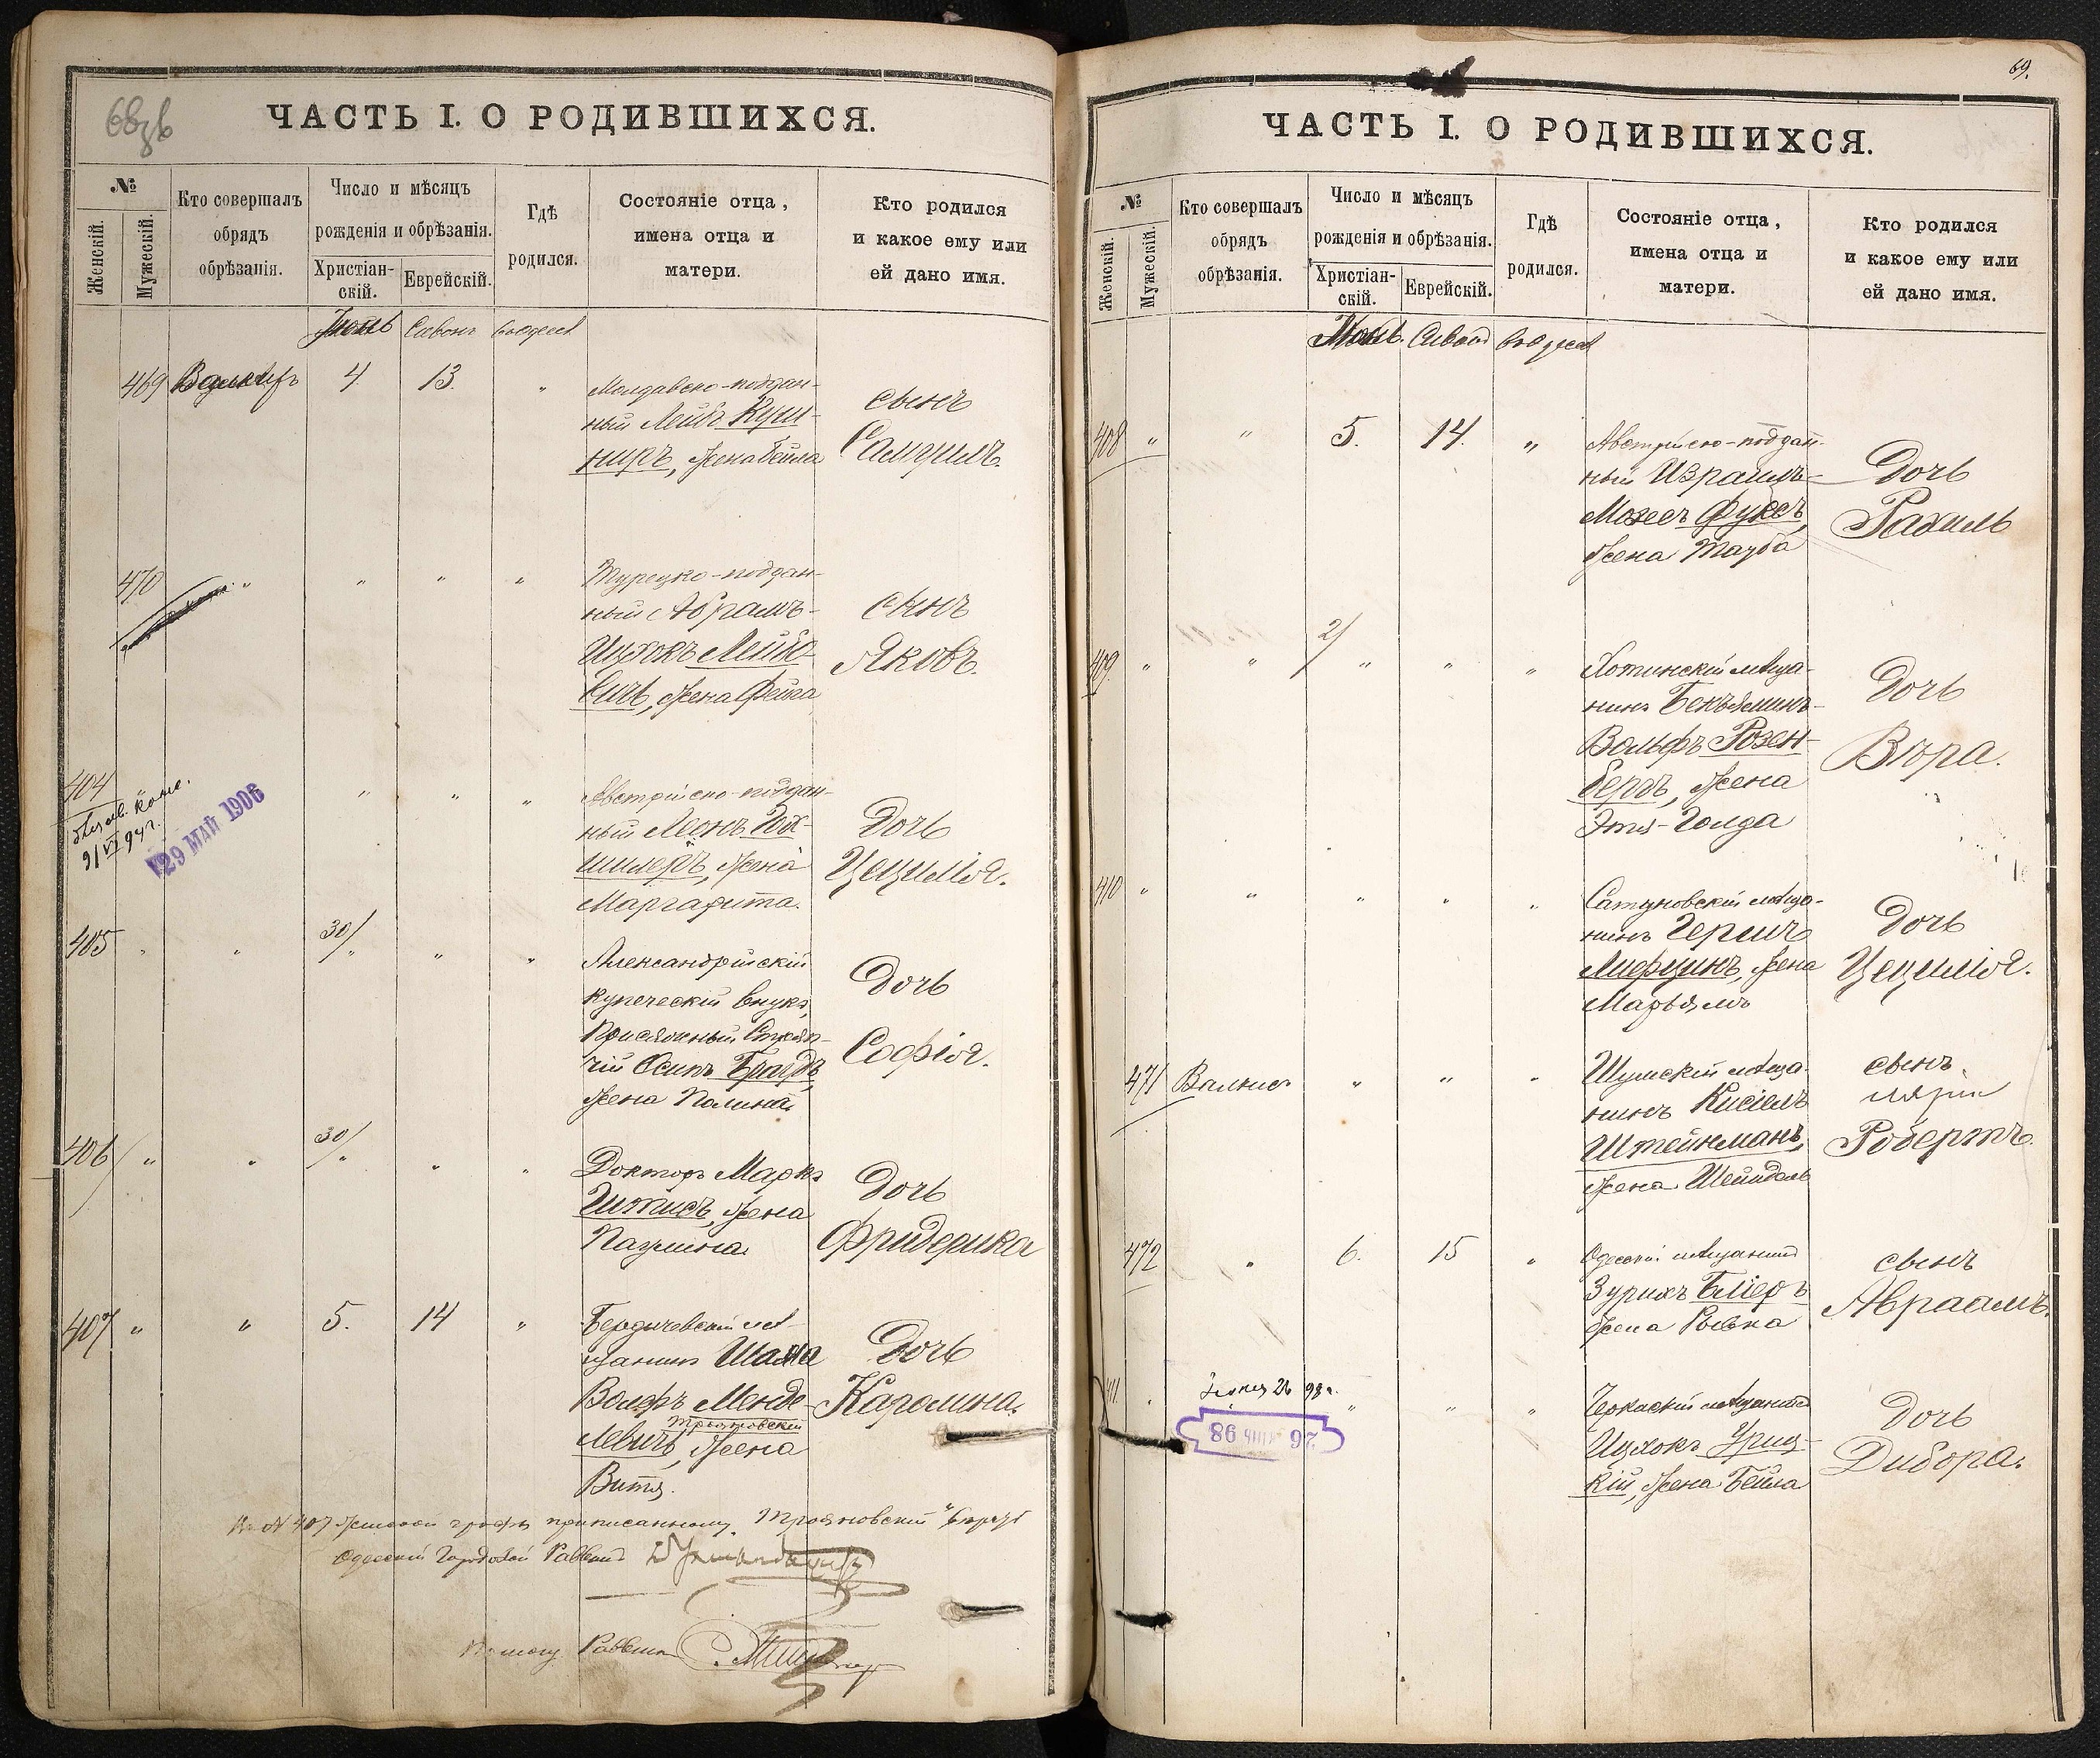 68об
ЧАСТЬ I. О РОДИВШИХСЯ.
№
Женскій.
Мужескій.
Кто совершалъ
обрядъ
обрѣзанія.
Число и мѣсяцъ
рожденія и обрѣзанія.
Христіан-
скій.
Еврейскій.
Гдѣ
родился.
Состояніе отца,
имена отца и
матери.
Кто родился
и какое ему или
ей дано имя.
Іюнь Сивонъ въ Одессѣ
469 4 13. "
Молдавско-поддан-
ный Лейбъ Куш-
ниръ, жена Бейла
сынъ
Самуилъ.
470 " " " "
Турецко-поддан-
ный Абрамъ-
Ицхокъ Лейбо-
вичъ, жена Фейга
сынъ
Яковъ.
404 " " "
29 МАЙ 1906
Австрійско-поддан-
ный Леонъ Гох-
шилеръ, жена
Маргарита.
Дочь
Цецилія.
405 " " 30/" " "
Александрійскій
купеческій внукъ,
Присяжный Стряп-
чій Осипъ Бродъ,
жена Полина.
Дочь
Софія.
406 " " 30/" " "
Докторъ Маркъ
жена
Паулина.
Дочь
Фридерика
407 " " 5. 14 "
Бердичевскій мѣ-
щанинъ
Вольфъ Менде-
Трояновскій
левичъ, жена
Витя.
Дочь
Каролина.
По № 407 женской графы приписанному "Трояновскій" вѣрить
Одесскій Городовой Раввинъ
Помощ. Раввина
69.
ЧАСТЬ I. О РОДИВШИХСЯ.
№
Женскій.
Мужескій.
Кто совершалъ
обрядъ
обрѣзанія.
Число и мѣсяцъ
рожденія и обрѣзанія.
Христіан-
скій.
Еврейскій.
Гдѣ
родился.
Состояніе отца,
имена отца и
матери.
Кто родился
и какое ему или
ей дано имя.
Іюнь. Сивонъ въ Одессѣ
408 " " 5. 14. "
Австрійско-поддан-
ный Израиль-
Мозесъ Фуксъ,
жена Тауба
Дочь
Рахиль
409. " " 2/" " "
Хотинскій мѣща-
нинъ Беньяминъ-
Вольфъ Розен-
бергъ, жена
Этя-Голда
Дочь
Вѣра.
410 " " " " "
Сатуновскій мѣща-
нинъ Гершъ
жена
Марьямъ
Дочь
Цецилія.
471 " " "
Шумскій мѣща-
нинъ Кисіель
Штейнманъ,
жена Шейндель
сынъ
Робертъ.
472 " 6. 15 "
Одесскій мѣщанинъ
жена Ривка
сынъ
Авраамъ.
411. " " " "
26 98
Черкаскій мѣщанинъ
Ицхокъ Уриц-
кій, жена Бейла
Дочь
Дибора.